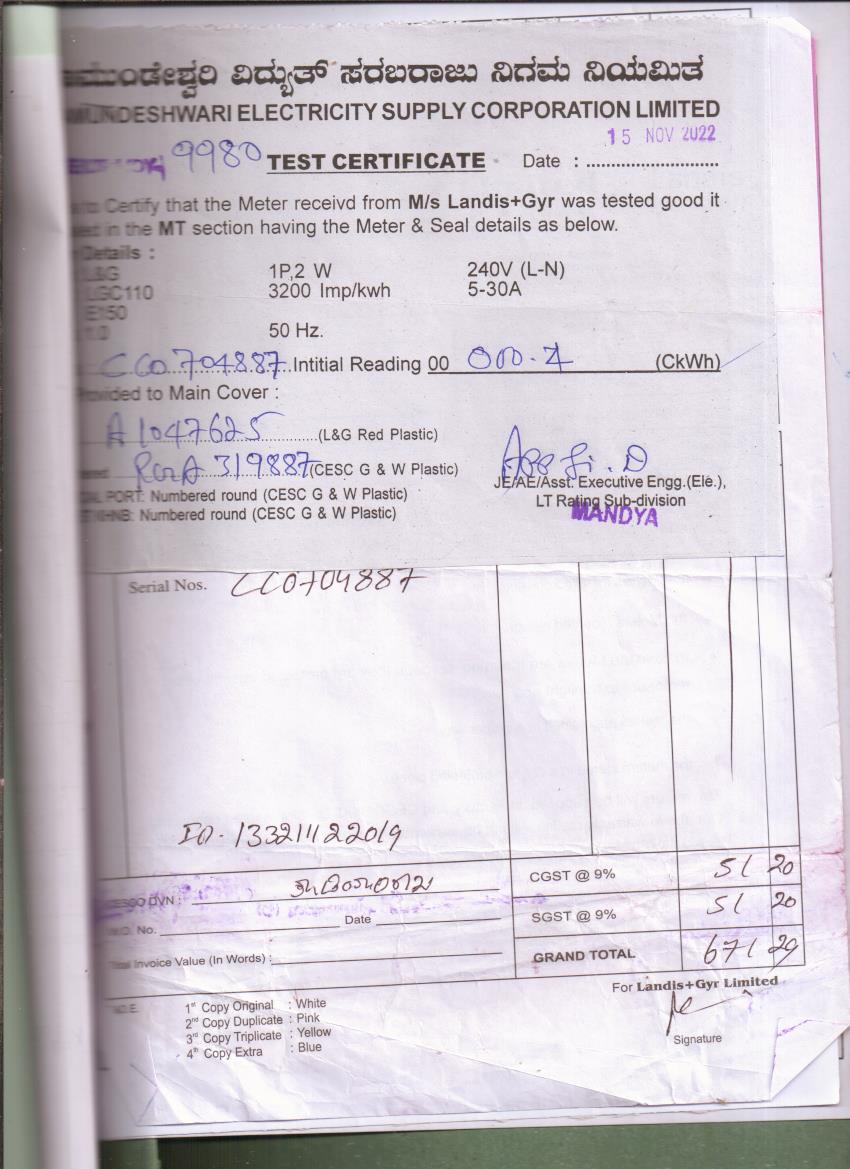 ಮುಂಡೇಶ್ವರಿ ವಿದ್ಯುತ್ ಸರಬರಾಜು ನಿಗಮ ನಿಯಮಿತ
MUNDESHWARI ELECTRICITY SUPPLY CORPORATION LIMITED
15 NOV 2022
9980 TEST CERTIFICATE Date : ..........................
to Certify that the Meter receivd from M/s Landis+Gyr was tested good it
in the MT section having the Meter & Seal details as below.
Details :
L&G 1P,2 W 240V (L-N)
LGC110 3200 Imp/kwh 5-30A
E150
1.0 50 Hz.
CC0704887 Intitial Reading 00 000.4 (CkWh)
Provided to Main Cover :
A1047625 (L&G Red Plastic)
319887 (CESC G & W Plastic)
PORT: Numbered round (CESC G & W Plastic)
JE/AE/Asst. Executive Engg.(Ele.),
Numbered round (CESC G & W Plastic)
LT Rating Sub-division
MANDYA
Serial Nos. CC0704887
ID. 133211122019
CESCO DVN :
CGST @ 9% 51 20
W.O. No. Date
SGST @ 9% 51 20
Total Invoice Value (In Words) :
GRAND TOTAL 671 29
For Landis+Gyr Limited
N.O.E. 1st Copy Original : White
2nd Copy Duplicate : Pink
3rd Copy Triplicate : Yellow
4th Copy Extra : Blue
Signature